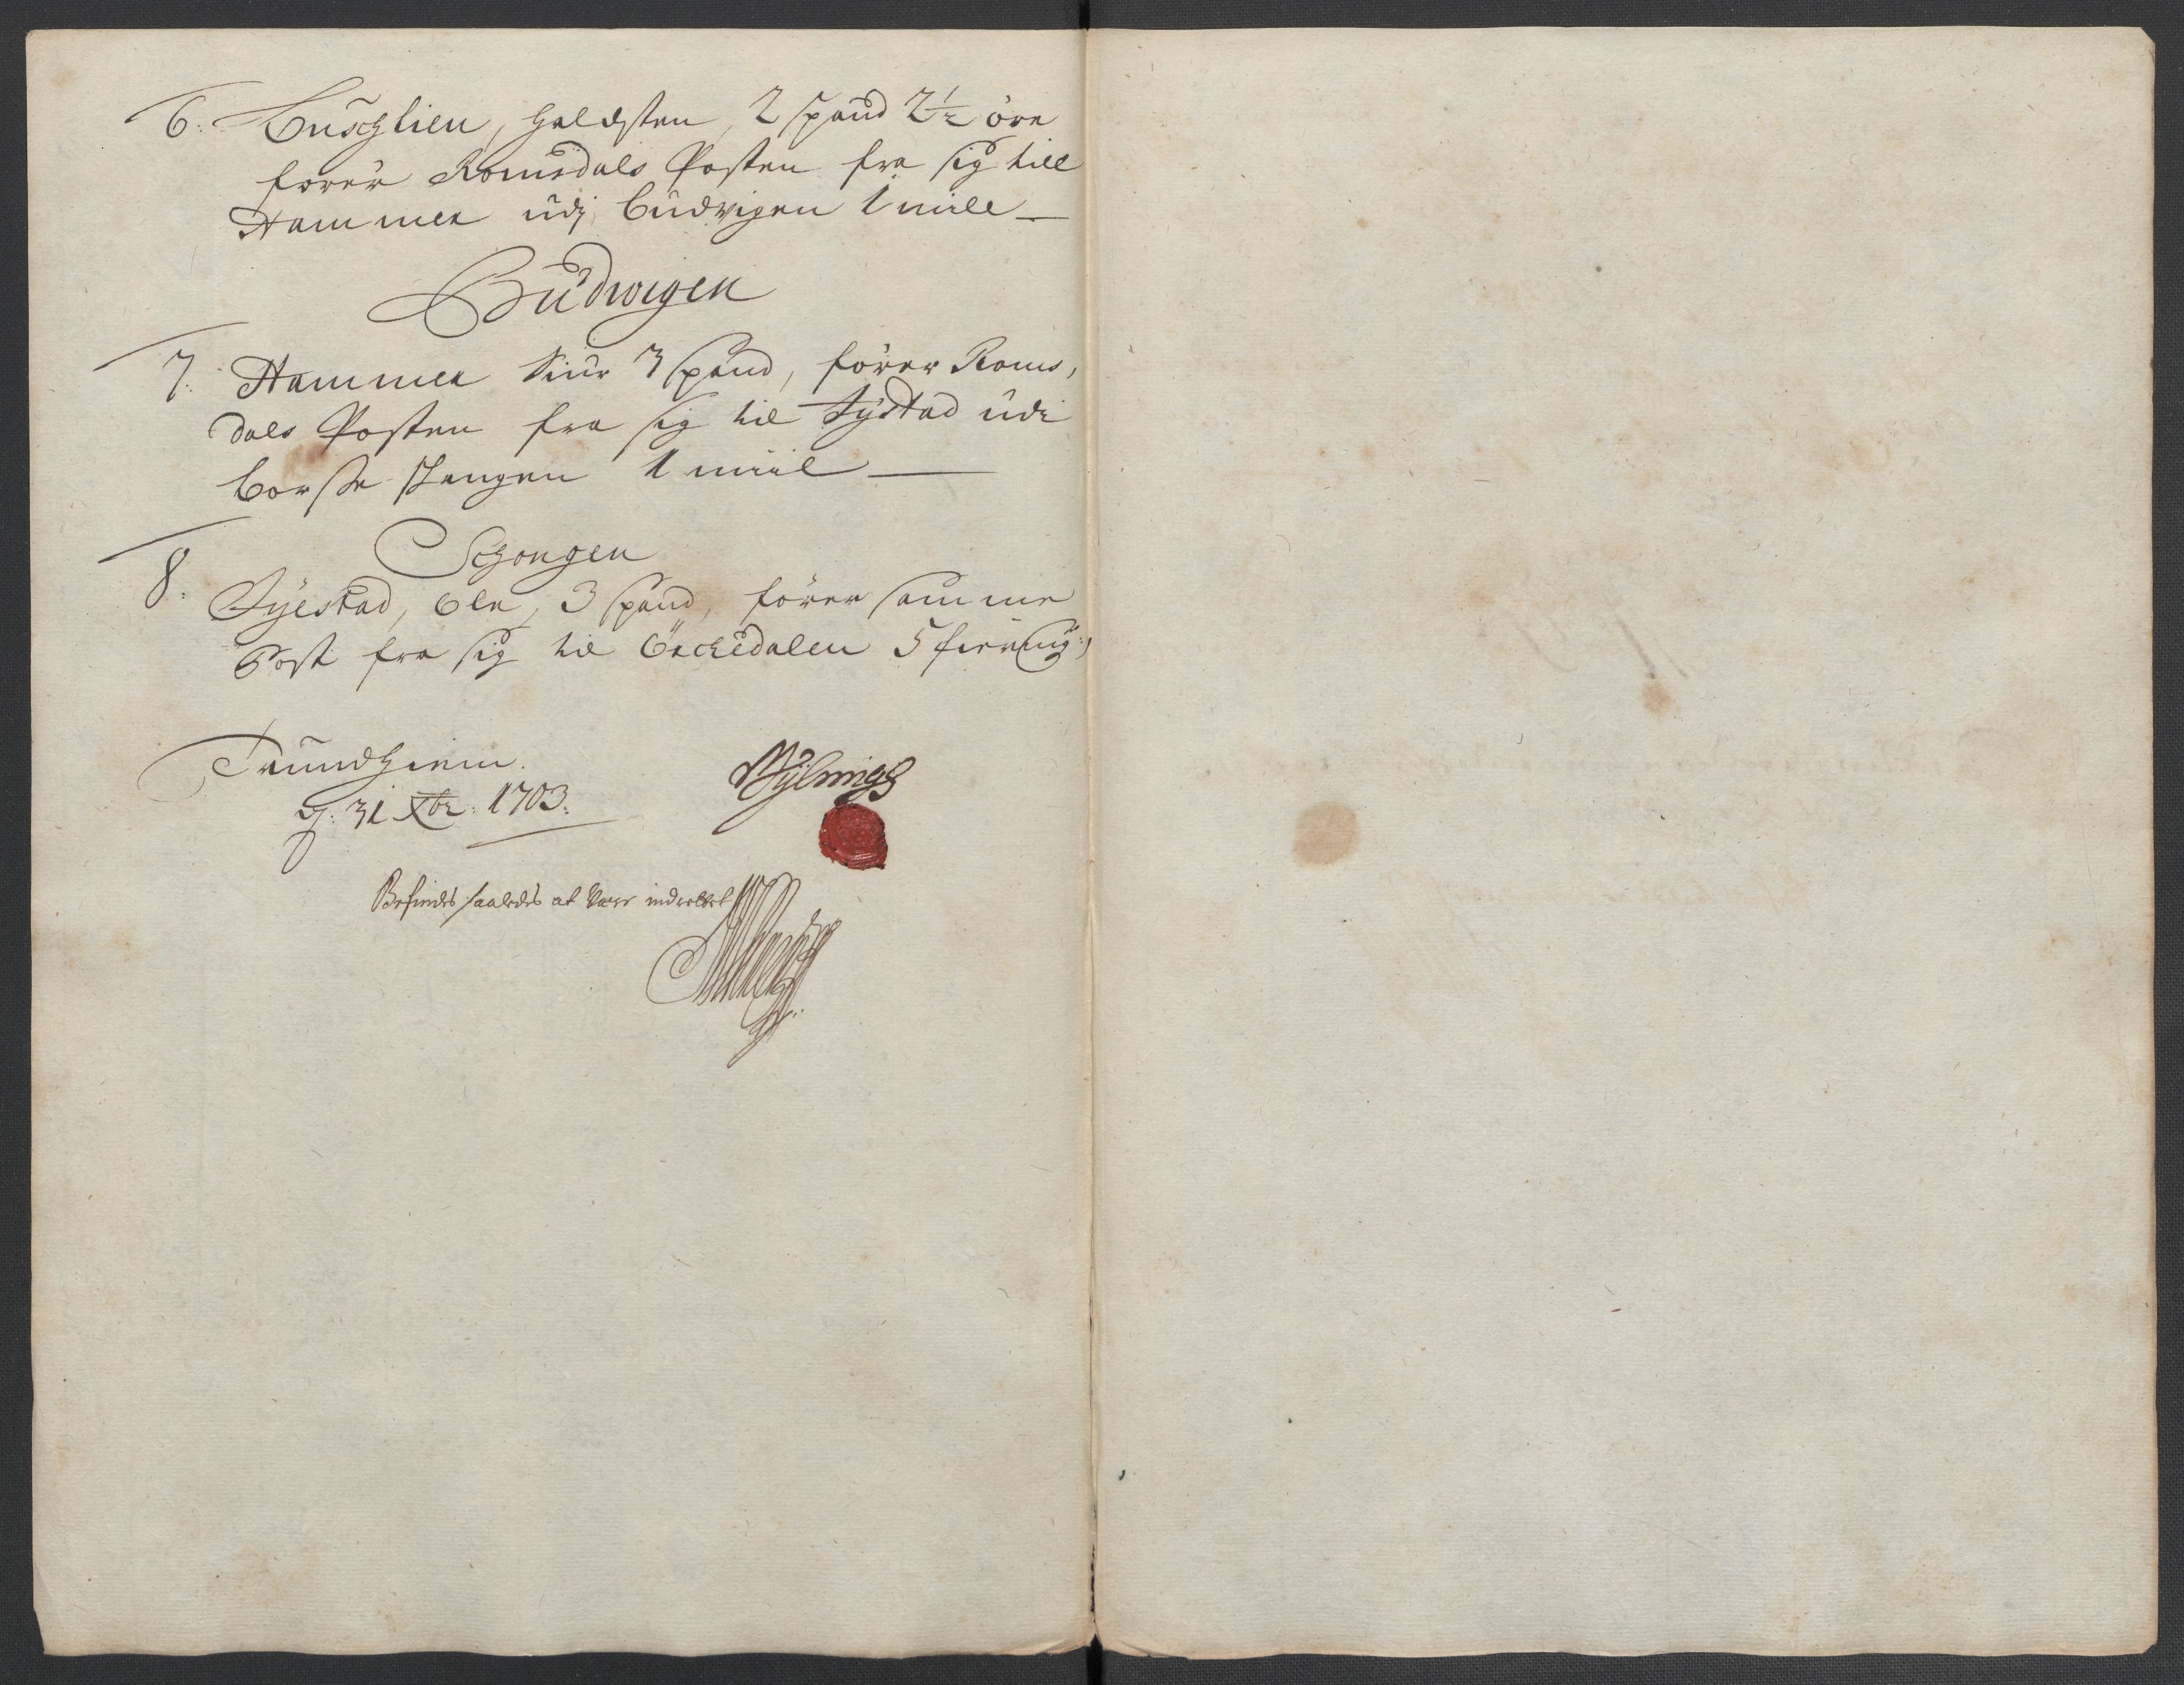 6. Buschlien, Haldsten, 2 spand 2½ øre
fører Romsdals Posten fra sig till
Hammer udj Budvigen 1 miile
Budwigen
7. Hammer Siur 3 spand, fører Roms,
dals Posten fra sig til Sÿstad udi
Børsse schougen 1 miil
Schougen
8. Sÿestad, Ole, 3 spand, fører samme
Post fra sig til Örckedalen 5 fierding:
Trundhiem
d: 31 Xbr: 1703.
Befindes saaledes at være indrettet